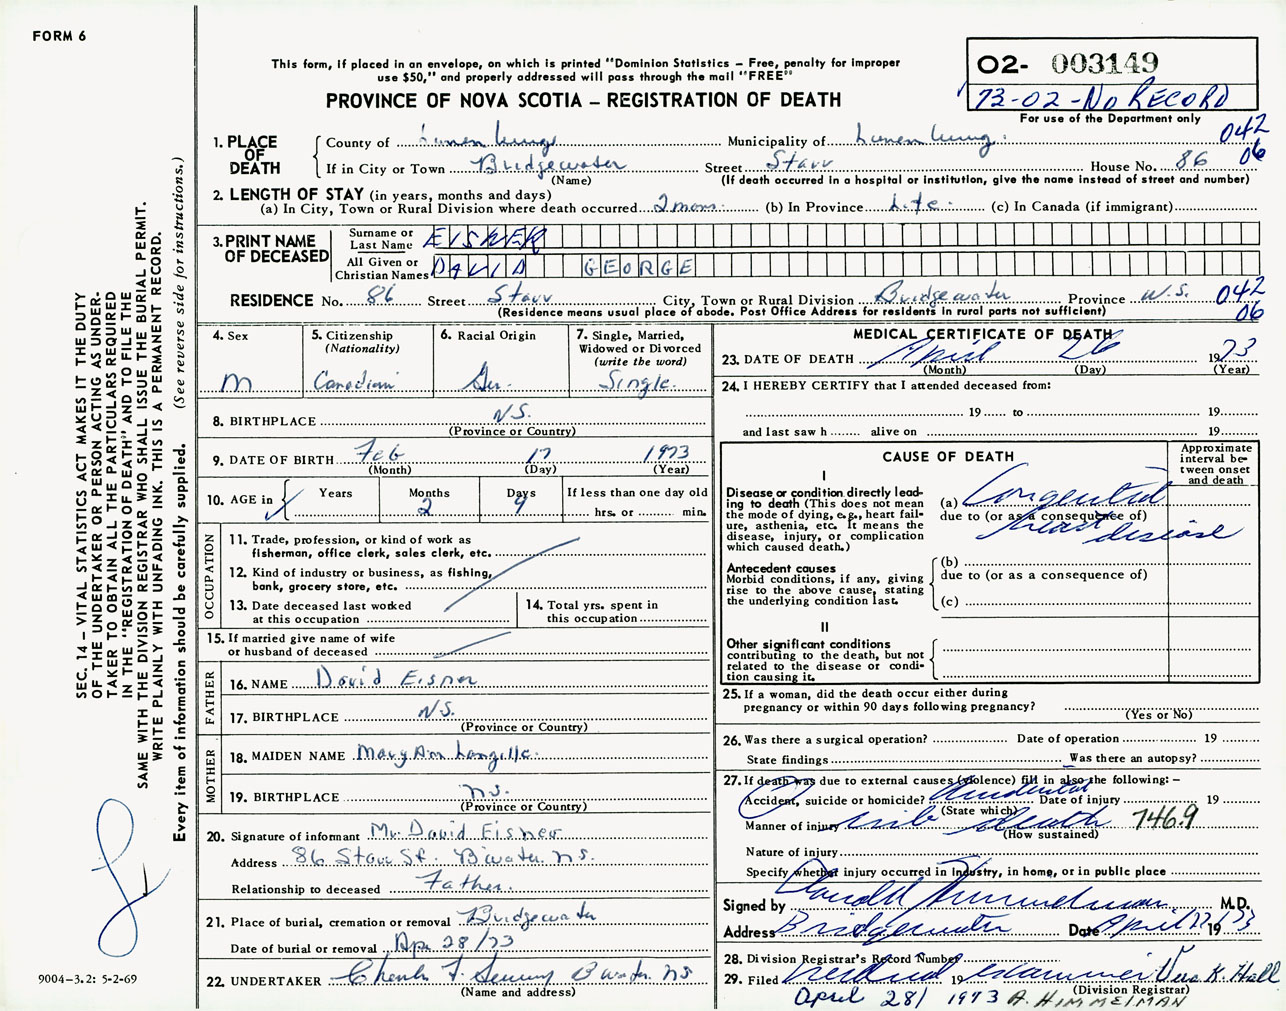 FORM 6
This form, if placed in an envelope, on which is printed "Dominion Statistics – Free, penalty for improper
use $50," and properly addressed will pass through the mail "FREE"
PROVINCE OF NOVA SCOTIA – REGISTRATION OF DEATH
02- 003149
73-02-NO RECORD
For use of the Department only
1. PLACE OF DEATH
County of Lunenburg Municipality of Lunenburg 042
If in City or Town Bridgewater Street Starr House No. 86 06
(Name) (If death occurred in a hospital or institution, give the name instead of street and number)
2. LENGTH OF STAY (in years, months and days)
(a) In City, Town or Rural Division where death occurred 2 mon. (b) In Province Life (c) In Canada (if immigrant)
3. PRINT NAME OF DECEASED
Surname or Last Name EISNER
All Given or Christian Names DAVID GEORGE
RESIDENCE No. 86 Street Starr City, Town or Rural Division Bridgewater Province N.S. 042
(Residence means usual place of abode. Post Office Address for residents in rural parts not sufficient) 06
4. Sex
M
5. Citizenship
(Nationality)
Canadian
6. Racial Origin
Ger.
7. Single, Married,
Widowed or Divorced
(write the word)
Single.
8. BIRTHPLACE N.S.
(Province or Country)
9. DATE OF BIRTH Feb 17 1973
(Month) (Day) (Year)
10. AGE in
Years Months Days If less than one day old
2 9 hrs. or min.
OCCUPATION
11. Trade, profession, or kind of work as
fisherman, office clerk, sales clerk, etc.
12. Kind of industry or business, as fishing,
bank, grocery store, etc.
13. Date deceased last worked
at this occupation
14. Total yrs. spent in
this occupation
15. If married give name of wife
or husband of deceased
FATHER
16. NAME David Eisner
17. BIRTHPLACE N.S.
(Province or Country)
MOTHER
18. MAIDEN NAME Mary Ann Langille
19. BIRTHPLACE N.S.
(Province or Country)
20. Signature of informant Mr. David Eisner
Address 86 Starr St. B'water N.S.
Relationship to deceased Father.
21. Place of burial, cremation or removal Bridgewater
Date of burial or removal Apr 28/73
22. UNDERTAKER Charles F. B'water NS
(Name and address)
MEDICAL CERTIFICATE OF DEATH
23. DATE OF DEATH April 26 1973
(Month) (Day) (Year)
24. I HEREBY CERTIFY that I attended deceased from:
19 to 19
and last saw h alive on 19
CAUSE OF DEATH
Approximate
interval be-
tween onset
and death
I
Disease or condition directly lead-
ing to death (This does not mean
the mode of dying, e.g., heart fail-
ure, asthenia, etc. It means the
disease, injury, or complication
which caused death.)
(a) Congenital
due to (or as a consequence of)
heart disease
Antecedent causes
Morbid conditions, if any, giving
rise to the above cause, stating
the underlying condition last.
(b)
due to (or as a consequence of)
(c)
II
Other significant conditions
contributing to the death, but not
related to the disease or condi-
tion causing it.
25. If a woman, did the death occur either during
pregnancy or within 90 days following pregnancy?
(Yes or No)
26. Was there a surgical operation? Date of operation 19
State findings Was there an autopsy?
27. If death was due to external causes (violence) fill in also the following: –
Accident, suicide or homicide? Accidental Date of injury 19
(State which)
Manner of injury crib death 746.9
(How sustained)
Nature of injury
Specify whether injury occurred in Industry, in home, or in public place
Signed by Donald Himmelman M.D.
Address Bridgewater Date April 27 1973
28. Division Registrar's Record Number
29. Filed 19 Vera K. Hall
(Division Registrar)
April 28/ 1973 A. HIMMELMAN
SEC. 14 – VITAL STATISTICS ACT MAKES IT THE DUTY
OF THE UNDERTAKER OR PERSON ACTING AS UNDER-
TAKER TO OBTAIN ALL THE PARTICULARS REQUIRED
IN THE "REGISTRATION OF DEATH" AND TO FILE THE
SAME WITH THE DIVISION REGISTRAR WHO SHALL ISSUE THE BURIAL PERMIT.
WRITE PLAINLY WITH UNFADING INK. THIS IS A PERMANENT RECORD.
Every item of information should be carefully supplied. (See reverse side for instructions.)
9004–3.2: 5-2-69